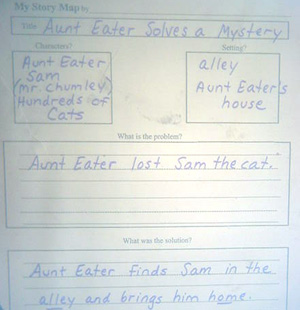 My Story Map by
Title Aunt Eater Solves a Mystery
Characters?
Aunt Eater
Sam
(mr. Chumley)
Hundreds of
Cats
Setting?
alley
Aunt Eater's
house
What is the problem?
Aunt Eater lost Sam the cat.
What was the solution?
Aunt Eater finds Sam in the
alley and brings him home.